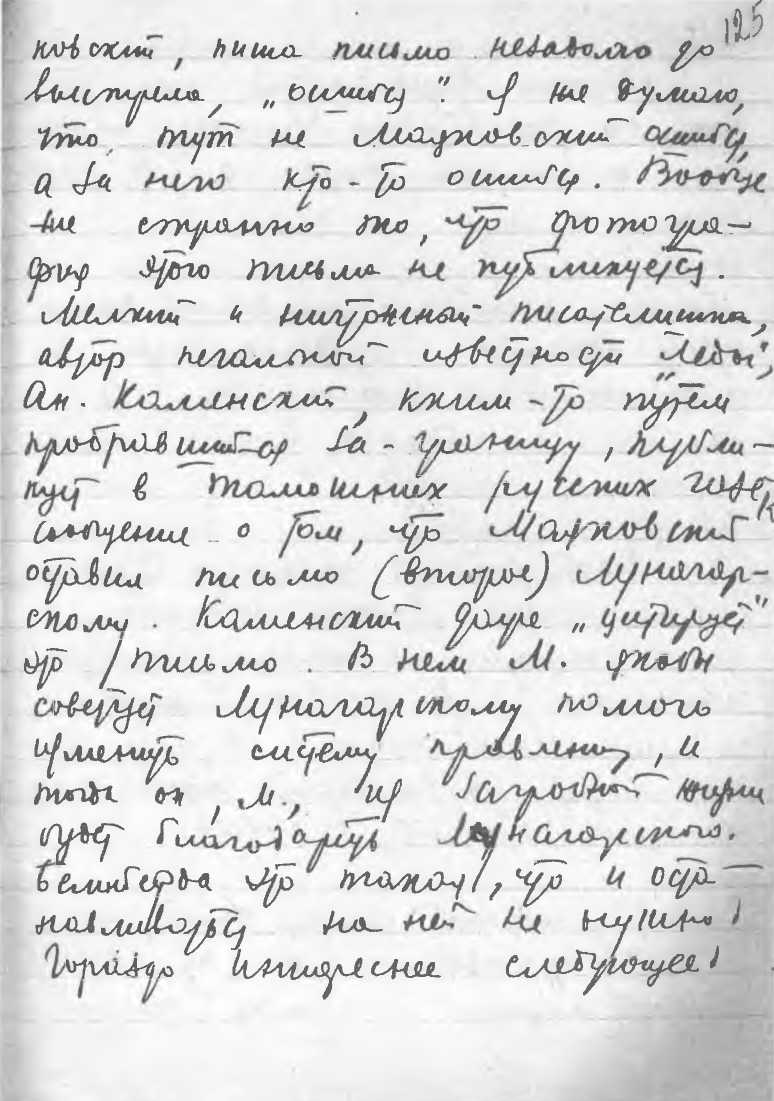 125
новский, пиша письмо незадолго до
выстрела, „ошибся". Я же думаю,
что, тут не Маяковский ошибся,
а за него кто-то ошибся. Вообще
же странно то, что фотогра-
фия этого письма не публикуется.
Мелкий и ничтожный писателишка,
автор печальной известности „Леды",
Ан. Каменский, каким-то путем
пробравшийся за-границу, публи-
кует в тамошних русских газет
сообщение о том, что Маяковский
оставил письмо (второе) Луначар-
скому. Каменский даже „цитирует"
это письмо. В нем М. якобы
советует Луначарскому помочь
изменить систему правления, и
тогда он, М., из загробной жизни
будет благодарить Луначарского.
Белиберда это такая, что и оста-
навливаться на ней не нужно!
Гораздо интереснее следующее!